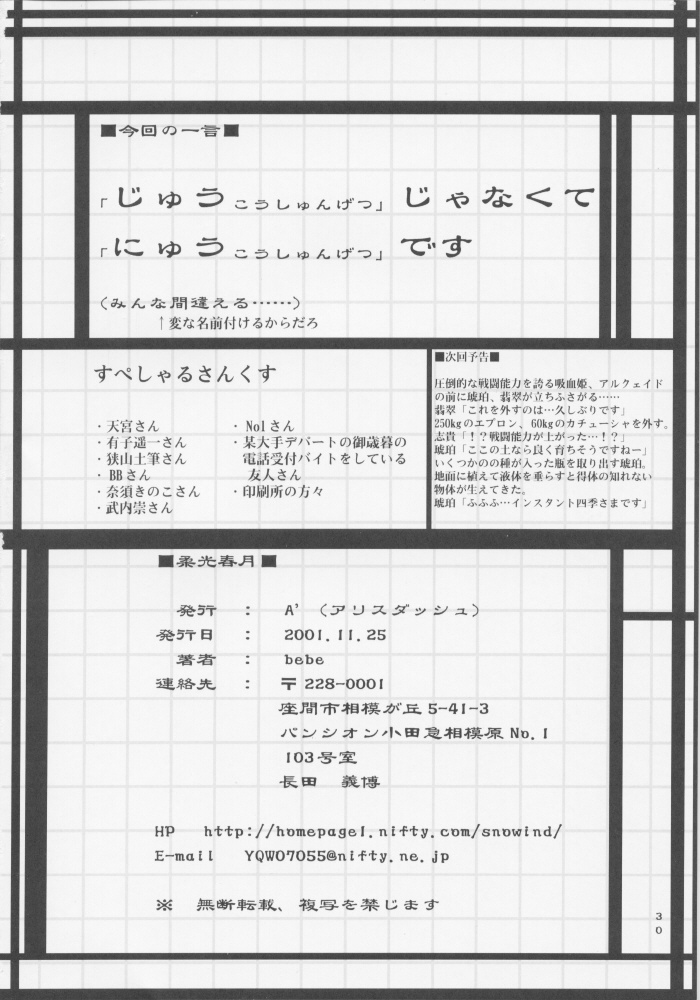 ■今回の一言■
「じゅうこうしゅんげつ」じゃなくて
「にゅうこうしゅんげつ」です
(みんな間違える……)
↑変な名前付けるからだろ
すぺしゃるさんくす
・天宮さん
・有子遥一さん
・狭山土筆さん
・BBさん
・奈須きのこさん
・武内崇さん
・No1さん
・某大手デパートの御歳暮の
電話受付バイトをしている
友人さん
・印刷所の方々
■次回予告■
圧倒的な戦闘能力を誇る吸血姫、アルクェイド
の前に琥珀、翡翠が立ちふさがる……
翡翠「これを外すのは…久しぶりです」
250kgのエプロン、60kgのカチューシャを外す。
志貴「！？戦闘能力が上がった…！？」
琥珀「ここの土なら良く育ちそうですねー」
いくつかのの種が入った瓶を取り出す琥珀。
地面に植えて液体を垂らすと得体の知れない
物体が生えてきた。
琥珀「ふふふ…インスタント四季さまです」
■柔光春月■
発行 : A'（アリスダッシュ）
発行日 : 2001.11.25
著者 : bebe
連絡先 : 〒228-0001
座間市相模が丘5-41-3
パンシオン小田急相模原No.1
103号室
長田 義博
HP http://homepage1.nifty.com/snowind/
E-mail YQW07055@nifty.ne.jp
※ 無断転載、複写を禁じます
30